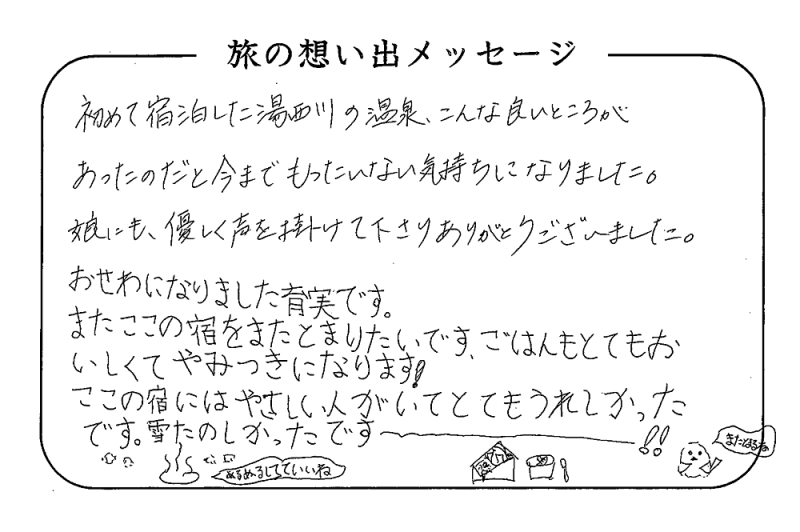 旅の想い出メッセージ
初めて宿泊した湯西川の温泉、こんな良いところが
あったのだと今までもったいない気持ちになりました。
娘にも、優しく声を掛けて下さりありがとうございました。
おせわになりました育実です。
またここの宿をまたとまりたいです、ごはんもとてもお
いしくてやみつきになります!
ここの宿にはやさしい人がいてとてもうれしかった
です。雪たのしかったです!!
またとまるね
ぬるぬるしてていいね